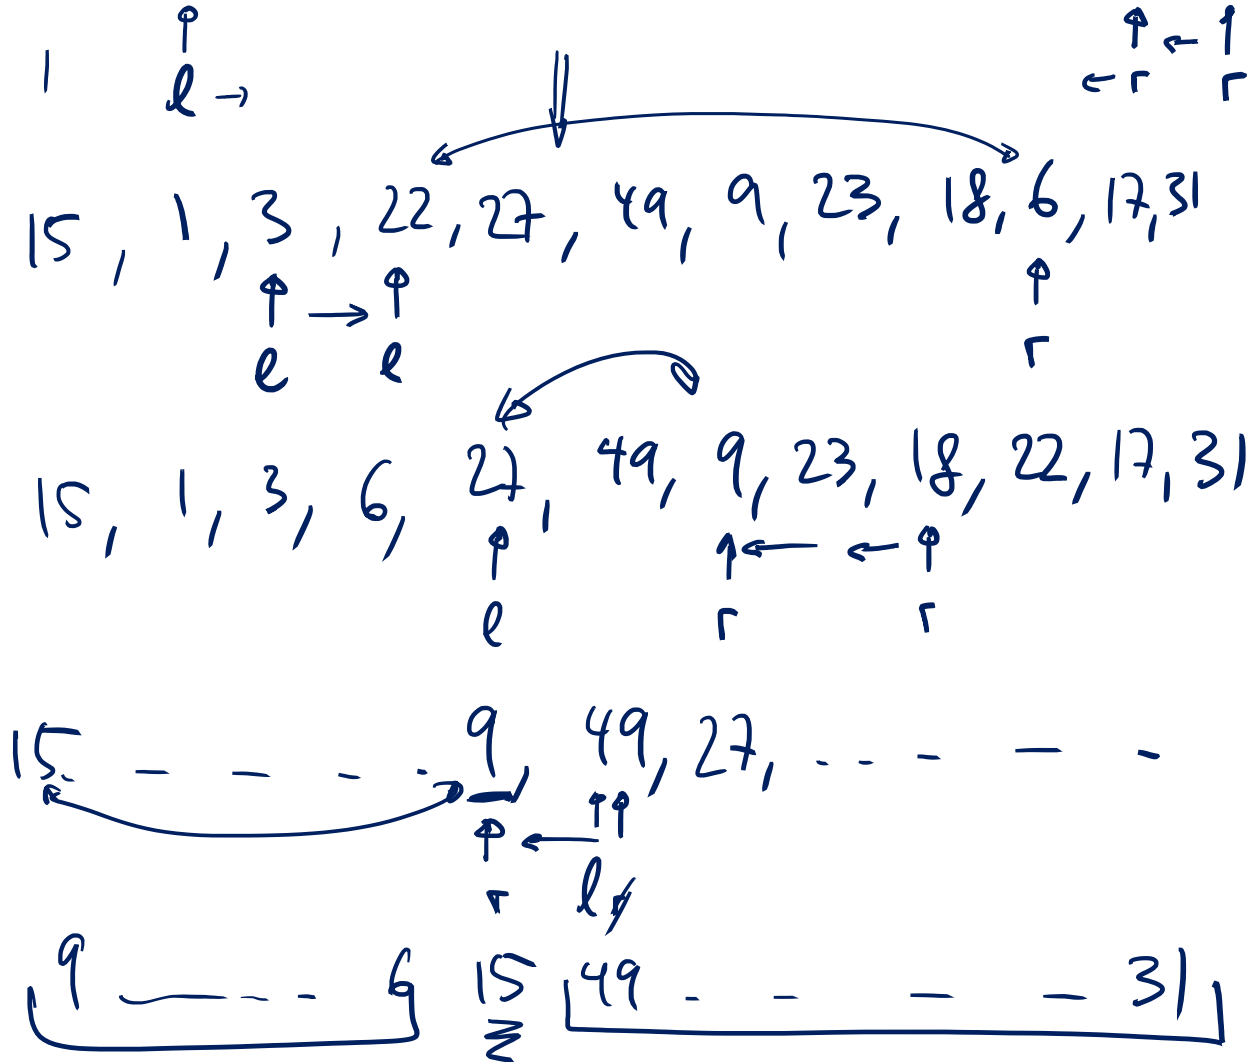 1 l → ← r ← r
15, 1, 3, 22, 27, 49, 9, 23, 18, 6, 17, 31
l → l r
15, 1, 3, 6, 27, 49, 9, 23, 18, 22, 17, 31
l r ← ← r
15 _ _ _ _ 9, 49, 27, _ _ _ _ _
r ← l r
9 _ _ _ 6 15 49 _ _ _ _ 31